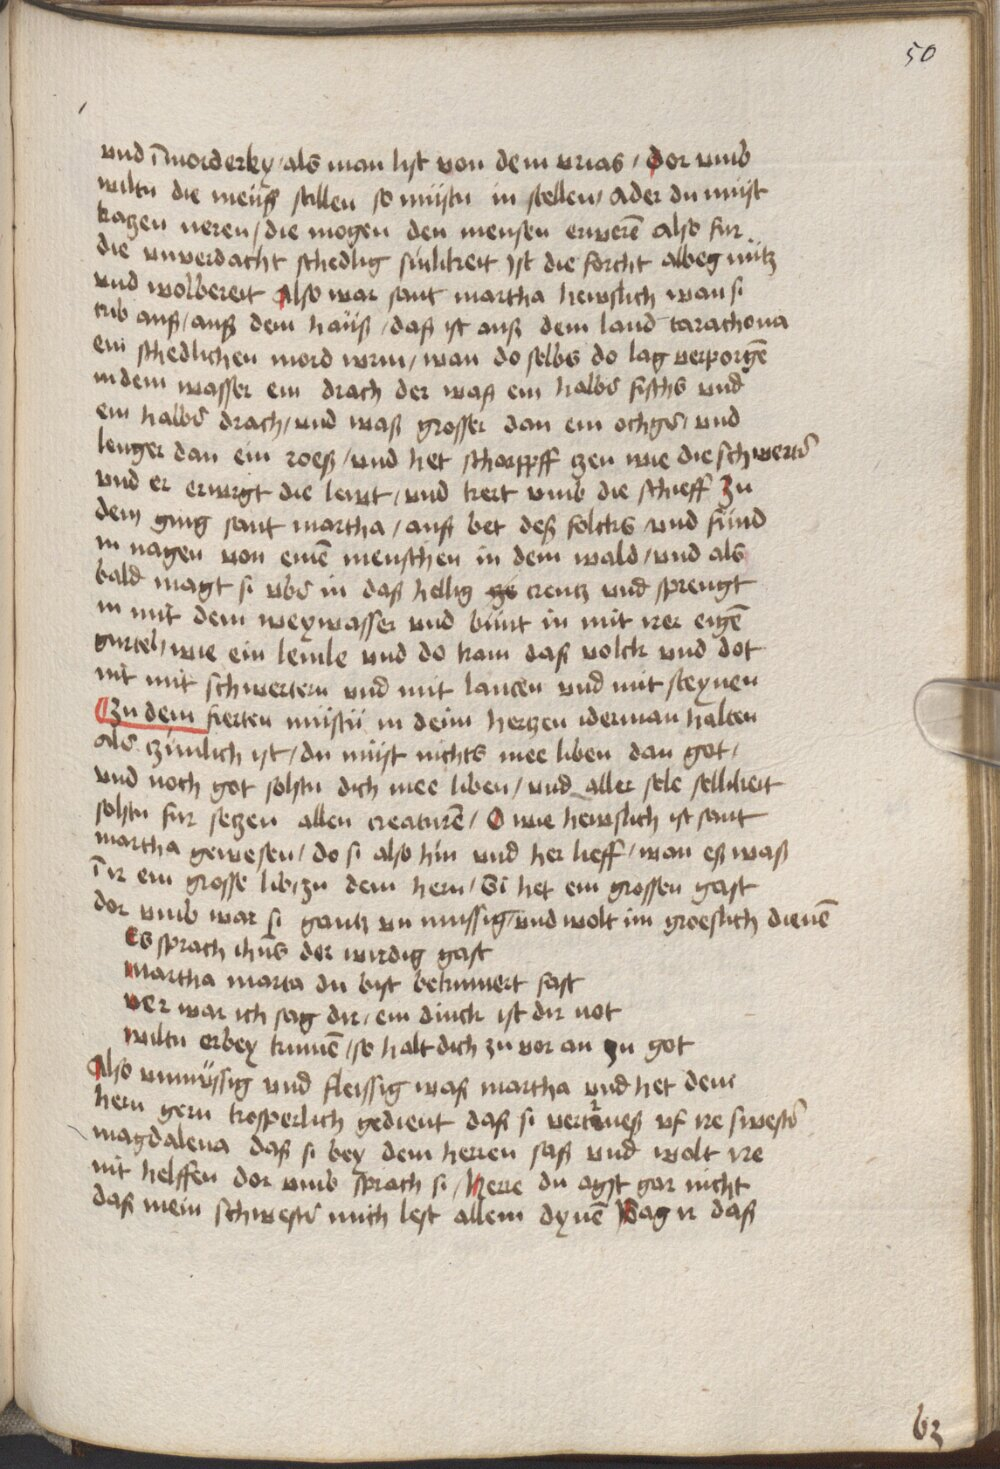 50
vnd im̄orderey / als man list von dem vrias / Dor vmb
wiltu die meüß stillen so müstu in stellen / Ader du müst
katzen neren / die mogen den meusen erwerē Also fur
die vnverdacht schedlig sinlikeit ist die forcht albeg nütz
vnd wolbereit Also war sant martha hewslich wan si
trib auß / auß dem hauß / daß ist auß dem land tarachona
ein schedlichen mord wrm / wan do selbs do lag verporgē
in dem wasser ein drach der waß ein halbs fischs vnd
ein halbs drach / vnd waß grosser dan ein ochgs / vnd
lenger dan ein roeß / vnd het schorppff czen wie die schwerts
vnd er erwrgt die lewt / vnd kert vmb die schieff Zu
dem ging sant martha / auß bet deß folcks / vnd fünd
in nagen von einē menschen in dem wald / vnd als
bald magt si vbs in daß hellig creutz vnd sprengt
in mit dem weywasser vnd bünt in mit irer eigē
gurtel / wie ein lemle vnd do kam daß volck vnd dot
int mit schwertern vnd mit lancen vnd mit steynen
Zu dem fierten müstü in deim hertzen iderman halten
als czimlich ist / du müst nichts mee liben dan got /
vnd noch got solstu dich mee liben / vnd aller sele sellikeit
solstu fur setzen allen creaturē / O wie hewslich ist sant
martha gewesen / do si also hin vnd her lieff / wan eß waß
in ir ein grosse lib / zu dem hern / Si het ein grossen gast
dor vmb war si gantz vn mussig / vnd wolt im groeslich dienē
Es sprach ihūs der wirdig gast
martha marta du bist bekumert fast
ver war ich sag dir / ein dinck ist dir not
wiltu erbey kumē / so halt dich zu vor an zu got
Also vnmüssig vnd fleissig waß martha vnd het dem
hern gern kosperlich gedient daß si vertrueß vf ire swests
magdalena daß si bey dem herren saß vnd wolt ire
nit helffen dor vmb sprach si / Herre du agst gar nicht
daß mein schwests mich lest allein dynē Sag ir daß